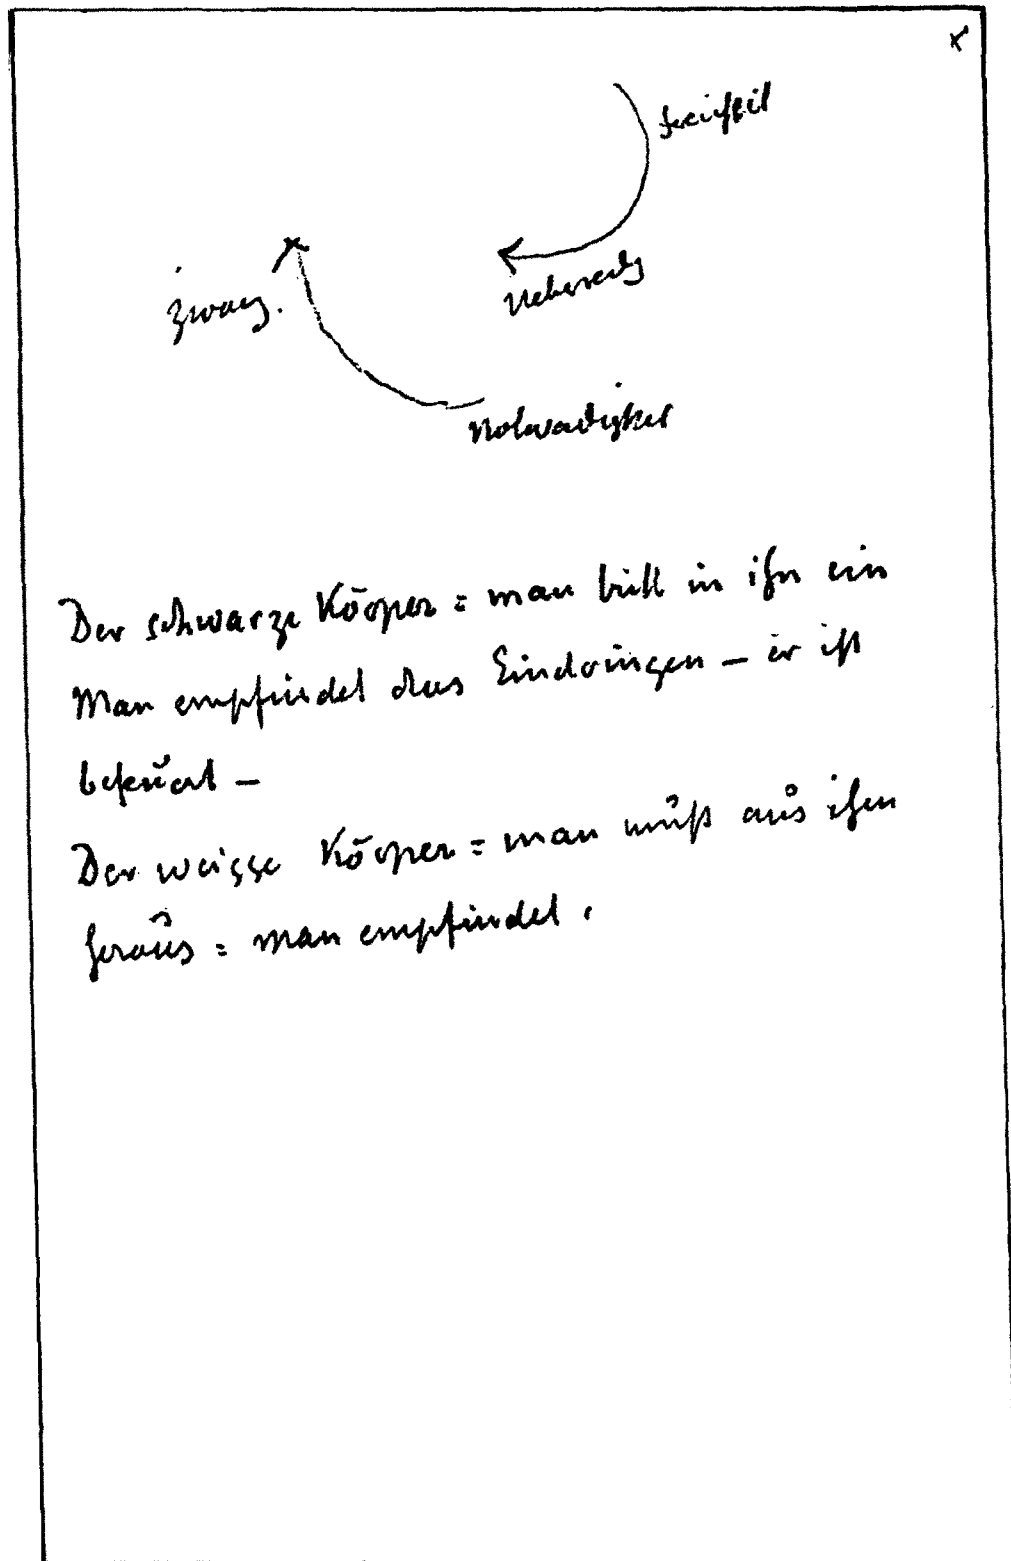 Freiheit
Zwang.
Notwendigkeit
Der schwarze Körper = man tritt in ihn ein
Man empfindet das Eindringen – er ist
Der weisse Körper = man muß aus ihm
heraus = man empfindet.